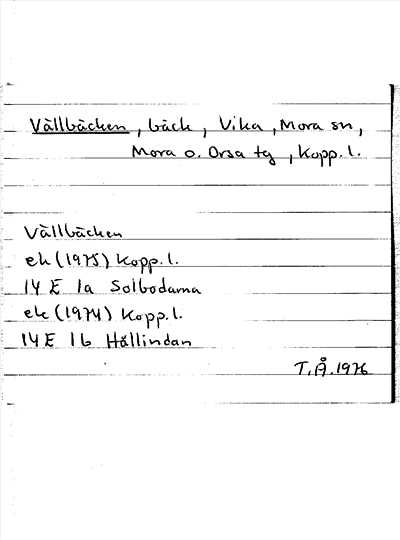 Vällbäcken, bäck, Vika, Mora sn,
Mora o. Orsa tg, Kopp. l.
Vällbäcken
ek (1975) Kopp. l.
14 E 1a Solbodarna
ek (1974) Kopp. l.
14 E 1b Hållindan
T.Å. 1976